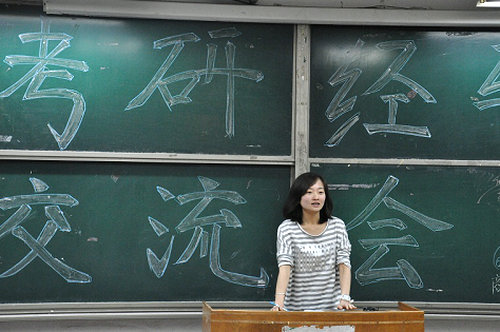 考研经
交流会